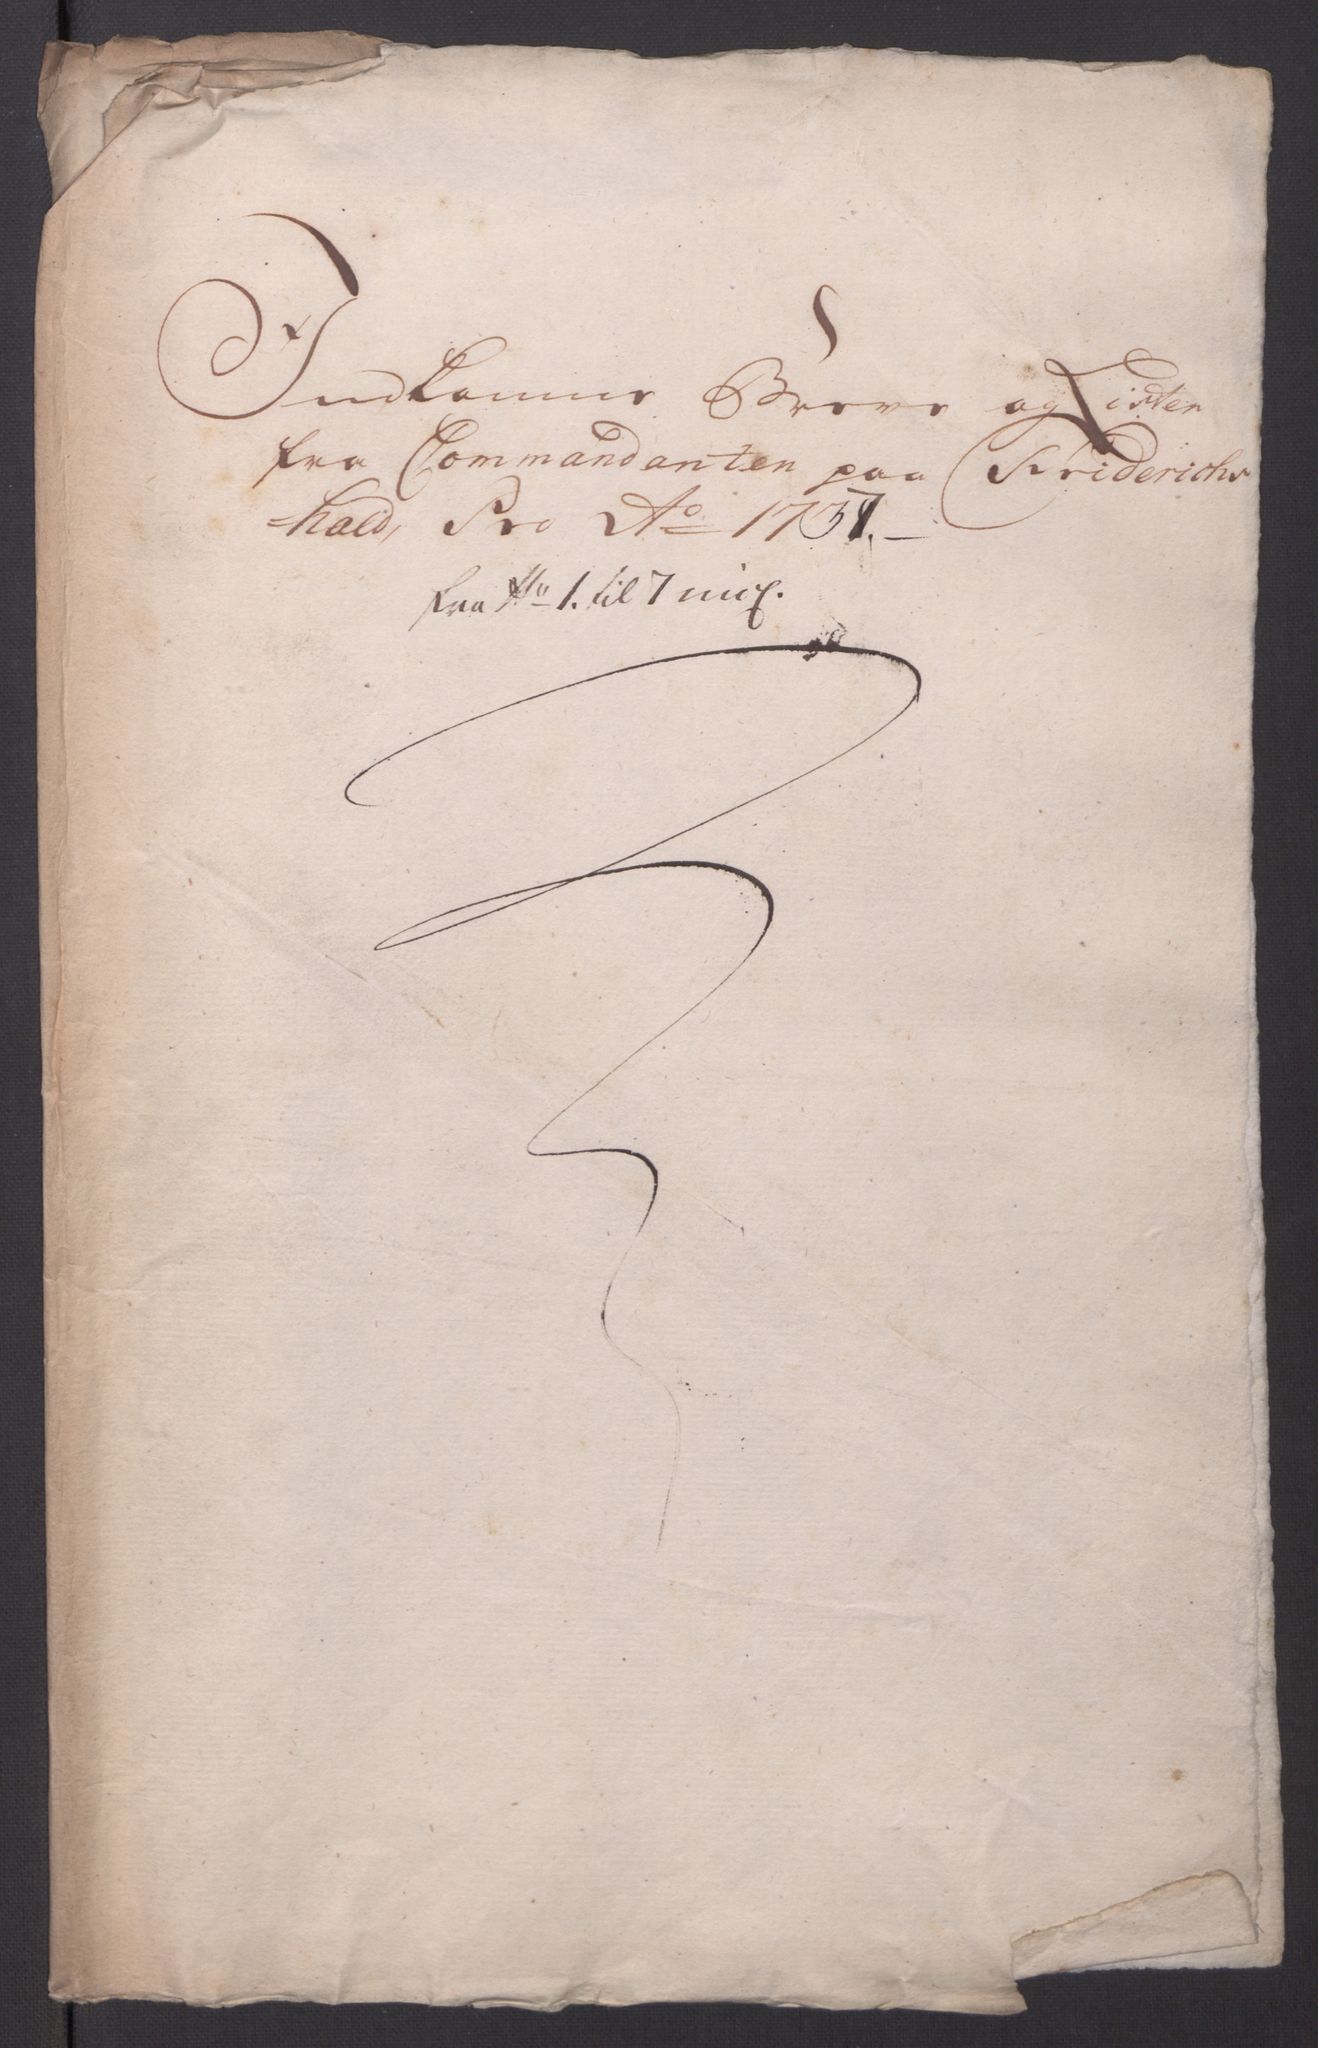 Indkomne Breve og Lister
fra Commandanten paa Friderichs
=hald, Pro Ao 1737.
fra No 1. til 7 incl.